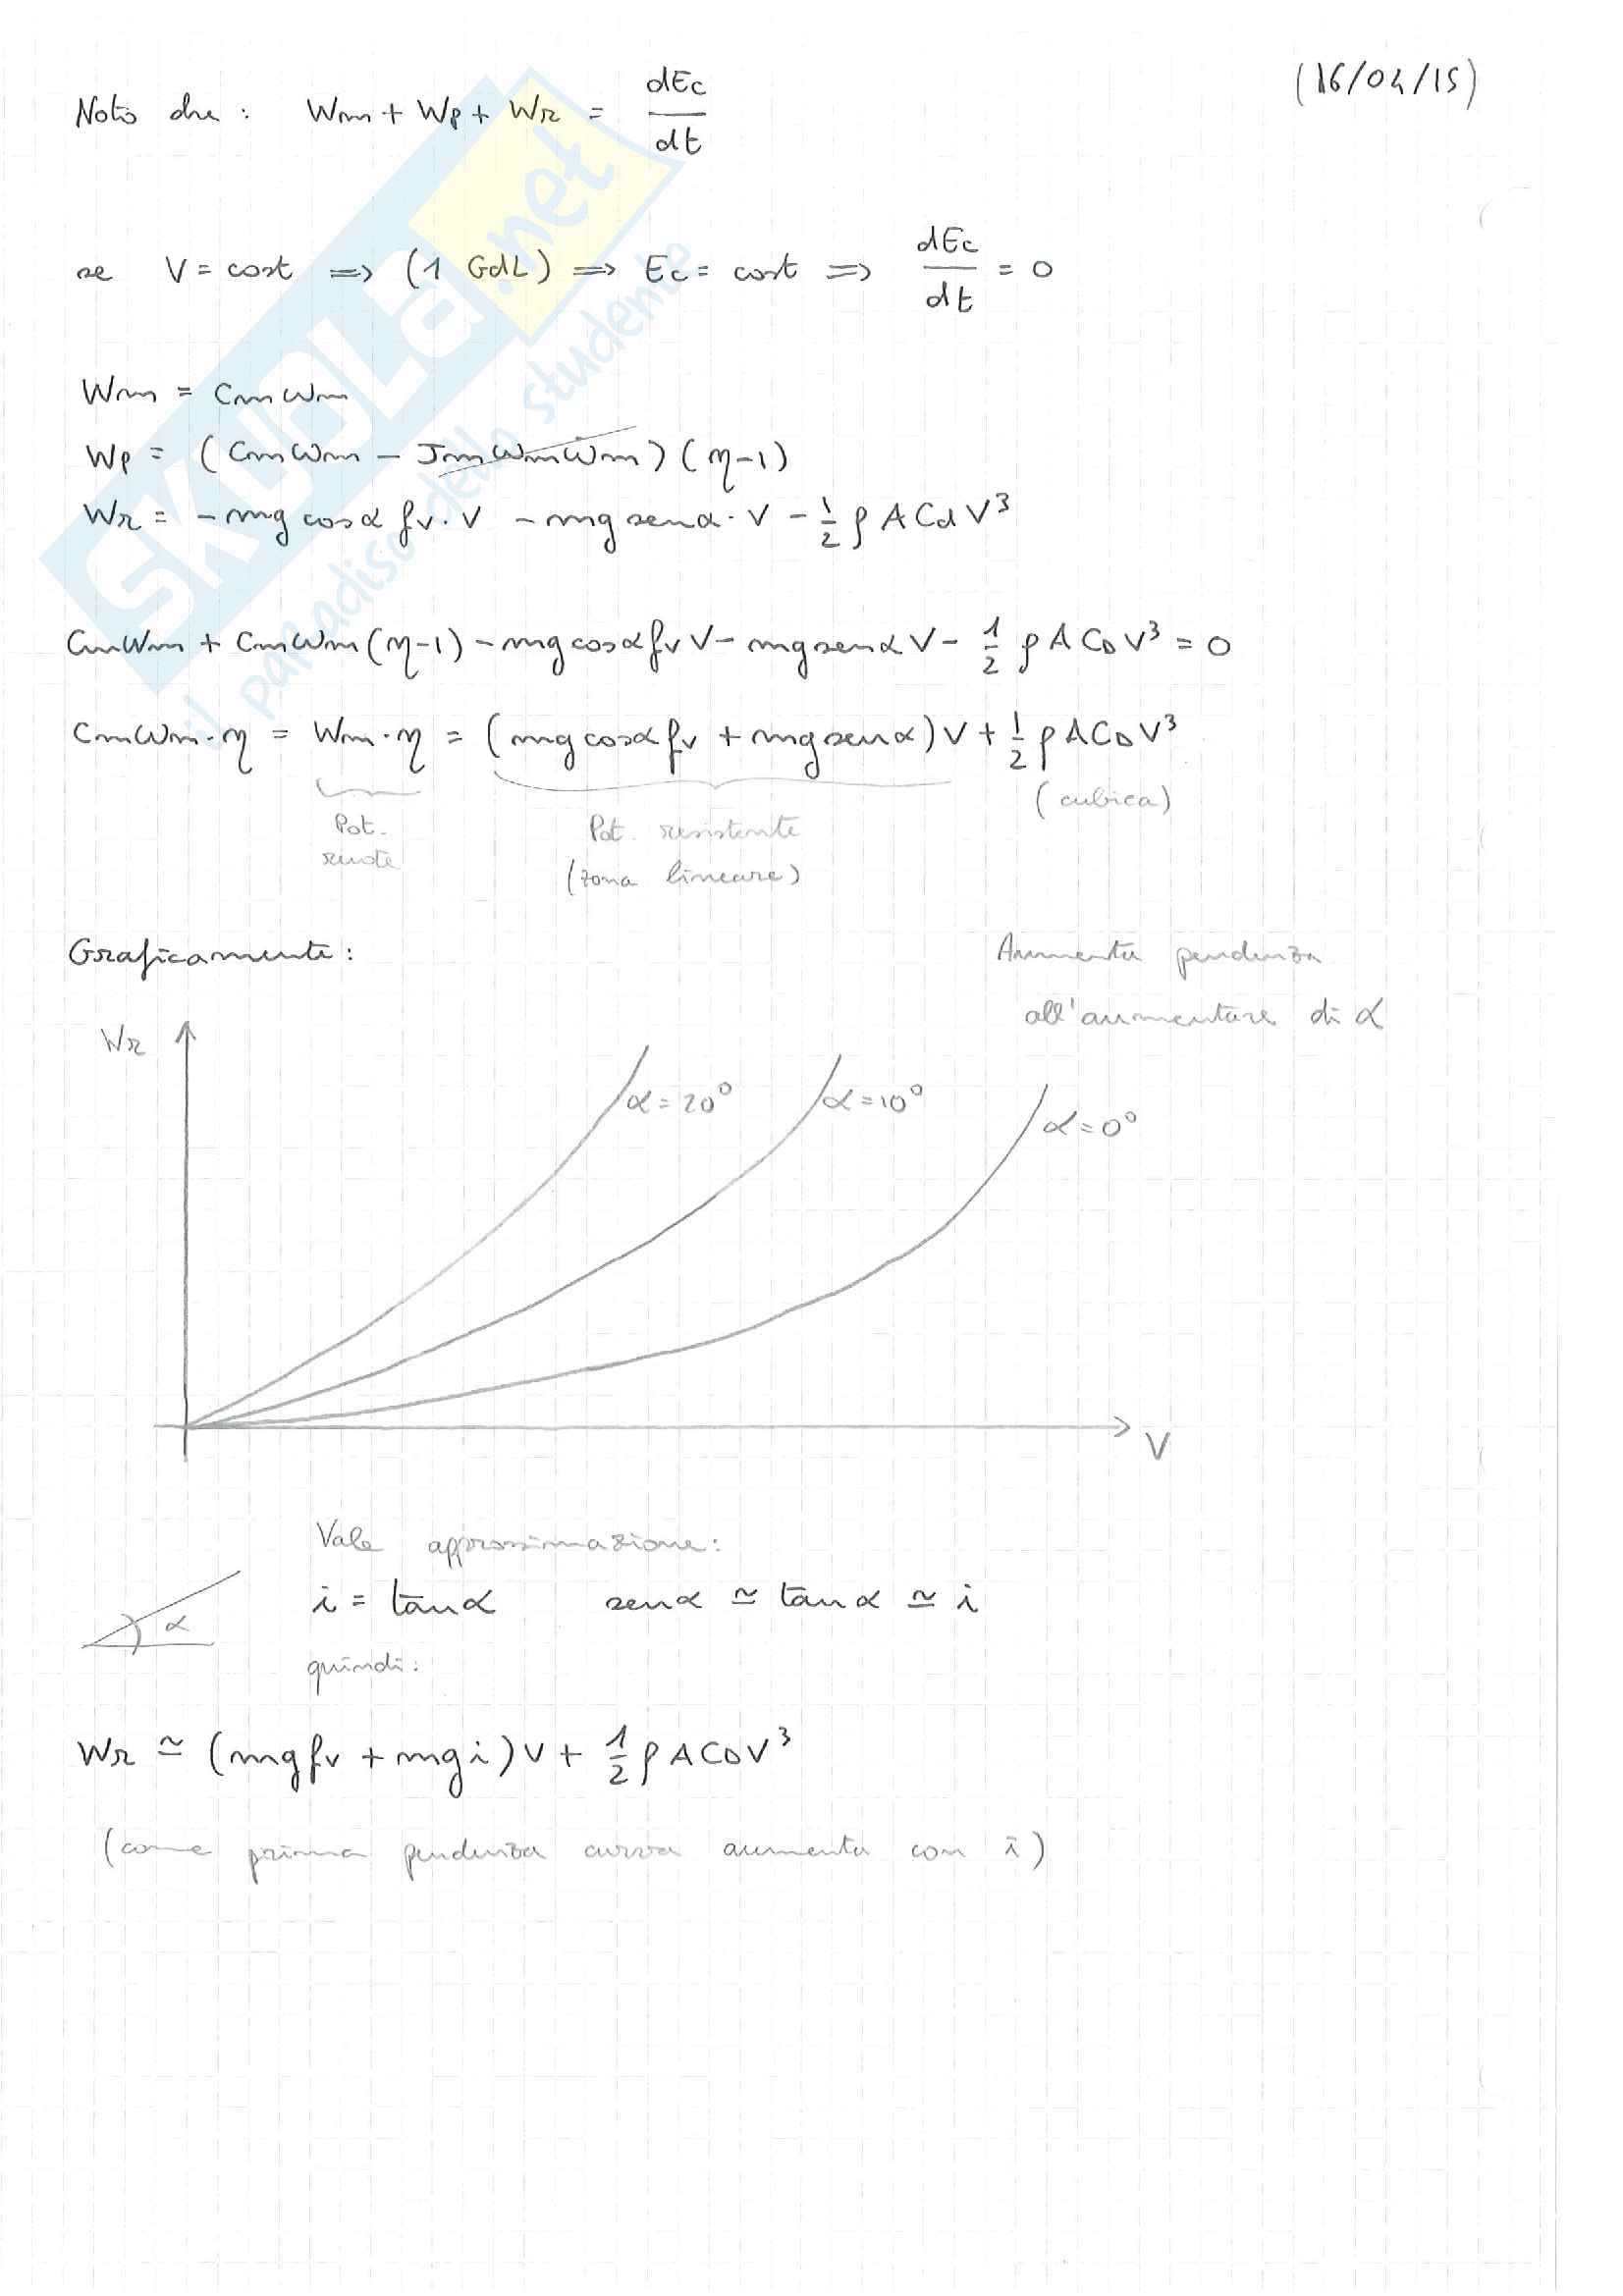 (16/04/15)
Noto che : Wm + Wp + Wr = dEc/dt
se V = cost => (1 GdL) => Ec = cost => dEc/dt = 0
Wm = Cmωm
Wp = (Cmωm - Jmωmω̇m)(η-1)
Wr = -mg cosα fv·V - mg senα·V - 1/2 ρ A Cd V³
Cmωm + Cmωm(η-1) - mg cosα fv V - mg senα V - 1/2 ρ A CD V³ = 0
Cmωm·η = Wm·η = (mg cosα fv + mg senα)V + 1/2 ρ A CD V³
(cubica)
Pot. ruote
Pot. resistente
(zona lineare)
Graficamente:
Aumenta pendenza
all'aumentare di α
Wr
α=20°
α=10°
α=0°
V
Vale approssimazione:
i = tanα senα ≃ tanα ≃ i
α
quindi:
Wr ≃ (mgfv + mgi)V + 1/2 ρ A CD V³
(come prima pendenza curva aumenta con i)
SKUOLA.net
il paradiso dello studente